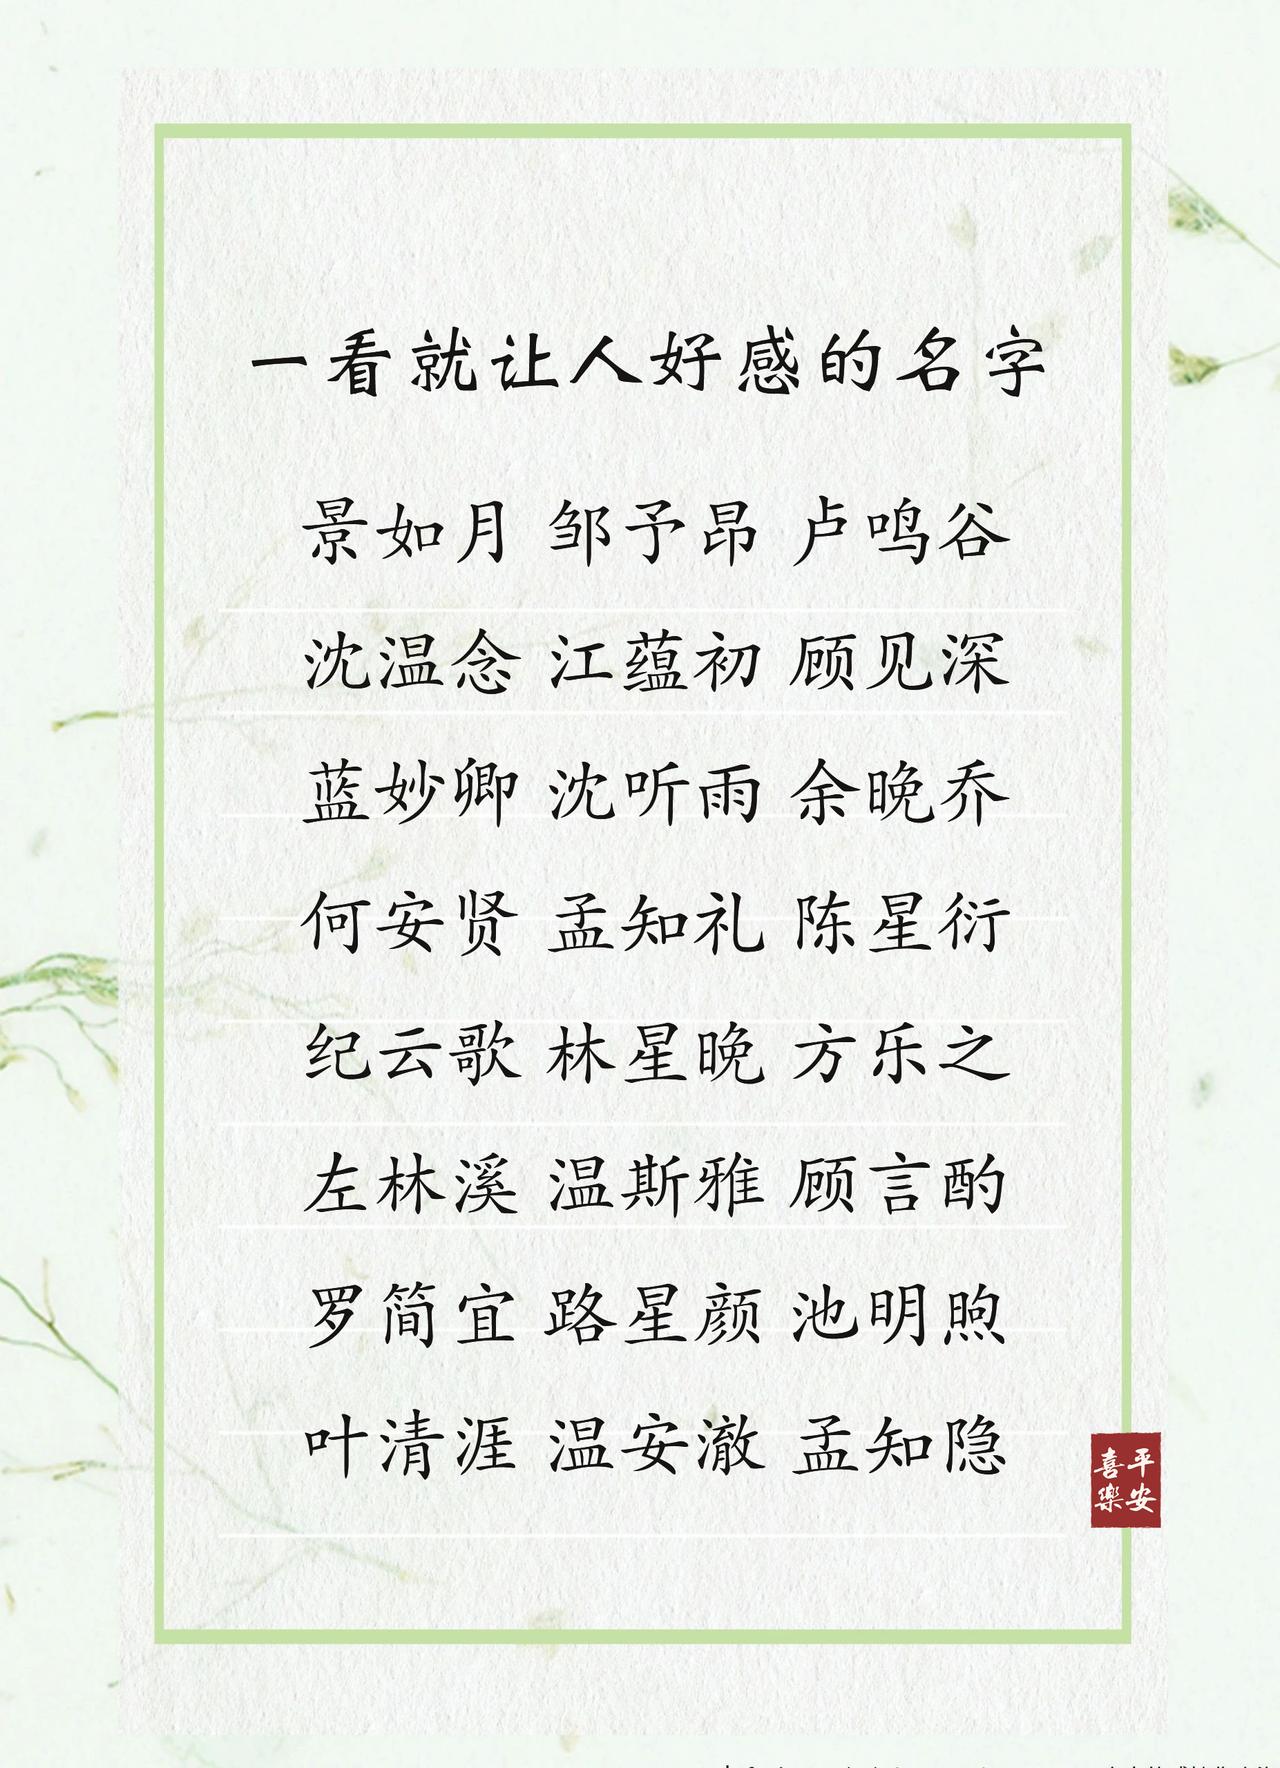 一看就让人好感的名字
景如月 邹予昂 卢鸣谷
沈温念 江蕴初 顾见深
蓝妙卿 沈听雨 余晚乔
何安贤 孟知礼 陈星衍
纪云歌 林星晚 方乐之
左林溪 温斯雅 顾言酌
罗简宜 路星颜 池明煦
叶清涯 温安澈 孟知隐
平安
喜樂